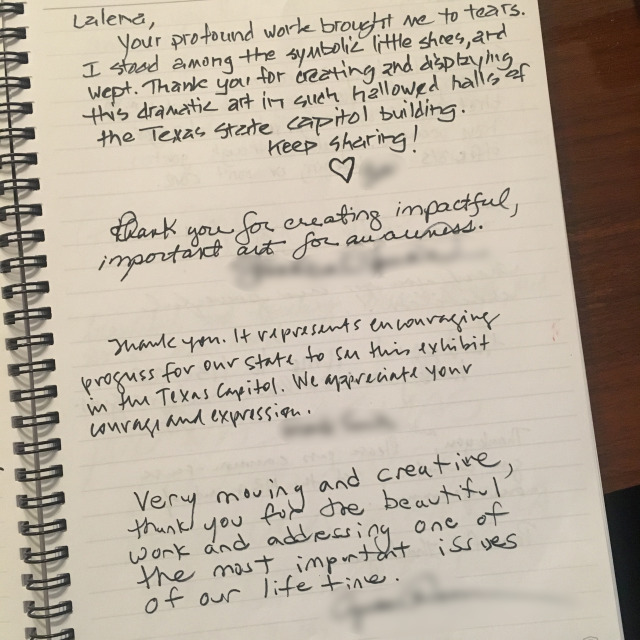 Lalena,
Your profound work brought me to tears.
I stood among the symbolic little shoes, and
wept. Thank you for creating and displaying
this dramatic art in such hallowed halls of
the Texas State Capitol building.
Keep sharing!
Thank you for creating impactful,
important art for awareness.
Thank you. It represents encouraging
progress for our state to see this exhibit
in the Texas Capitol. We appreciate your
courage and expression.
Very moving and creative,
thank you for the beautiful
work and addressing one of
the most important issues
of our life time.